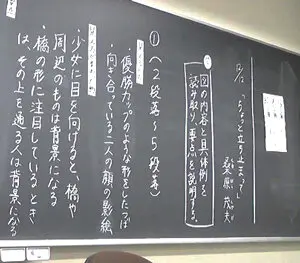 12/12 「ちょっと立ち止まって」
桑原 茂夫
図の内容と具体例を
読み取り、要点を説明する。
①(2段落〜5段落)
・優勝カップのような形をしたつぼ
・向き合っている二人の顔の影絵
・少女に目を向けると、橋や
周辺のものは背景になる
・橋の形に注目しているとき
は、その上を通る人は背景になる